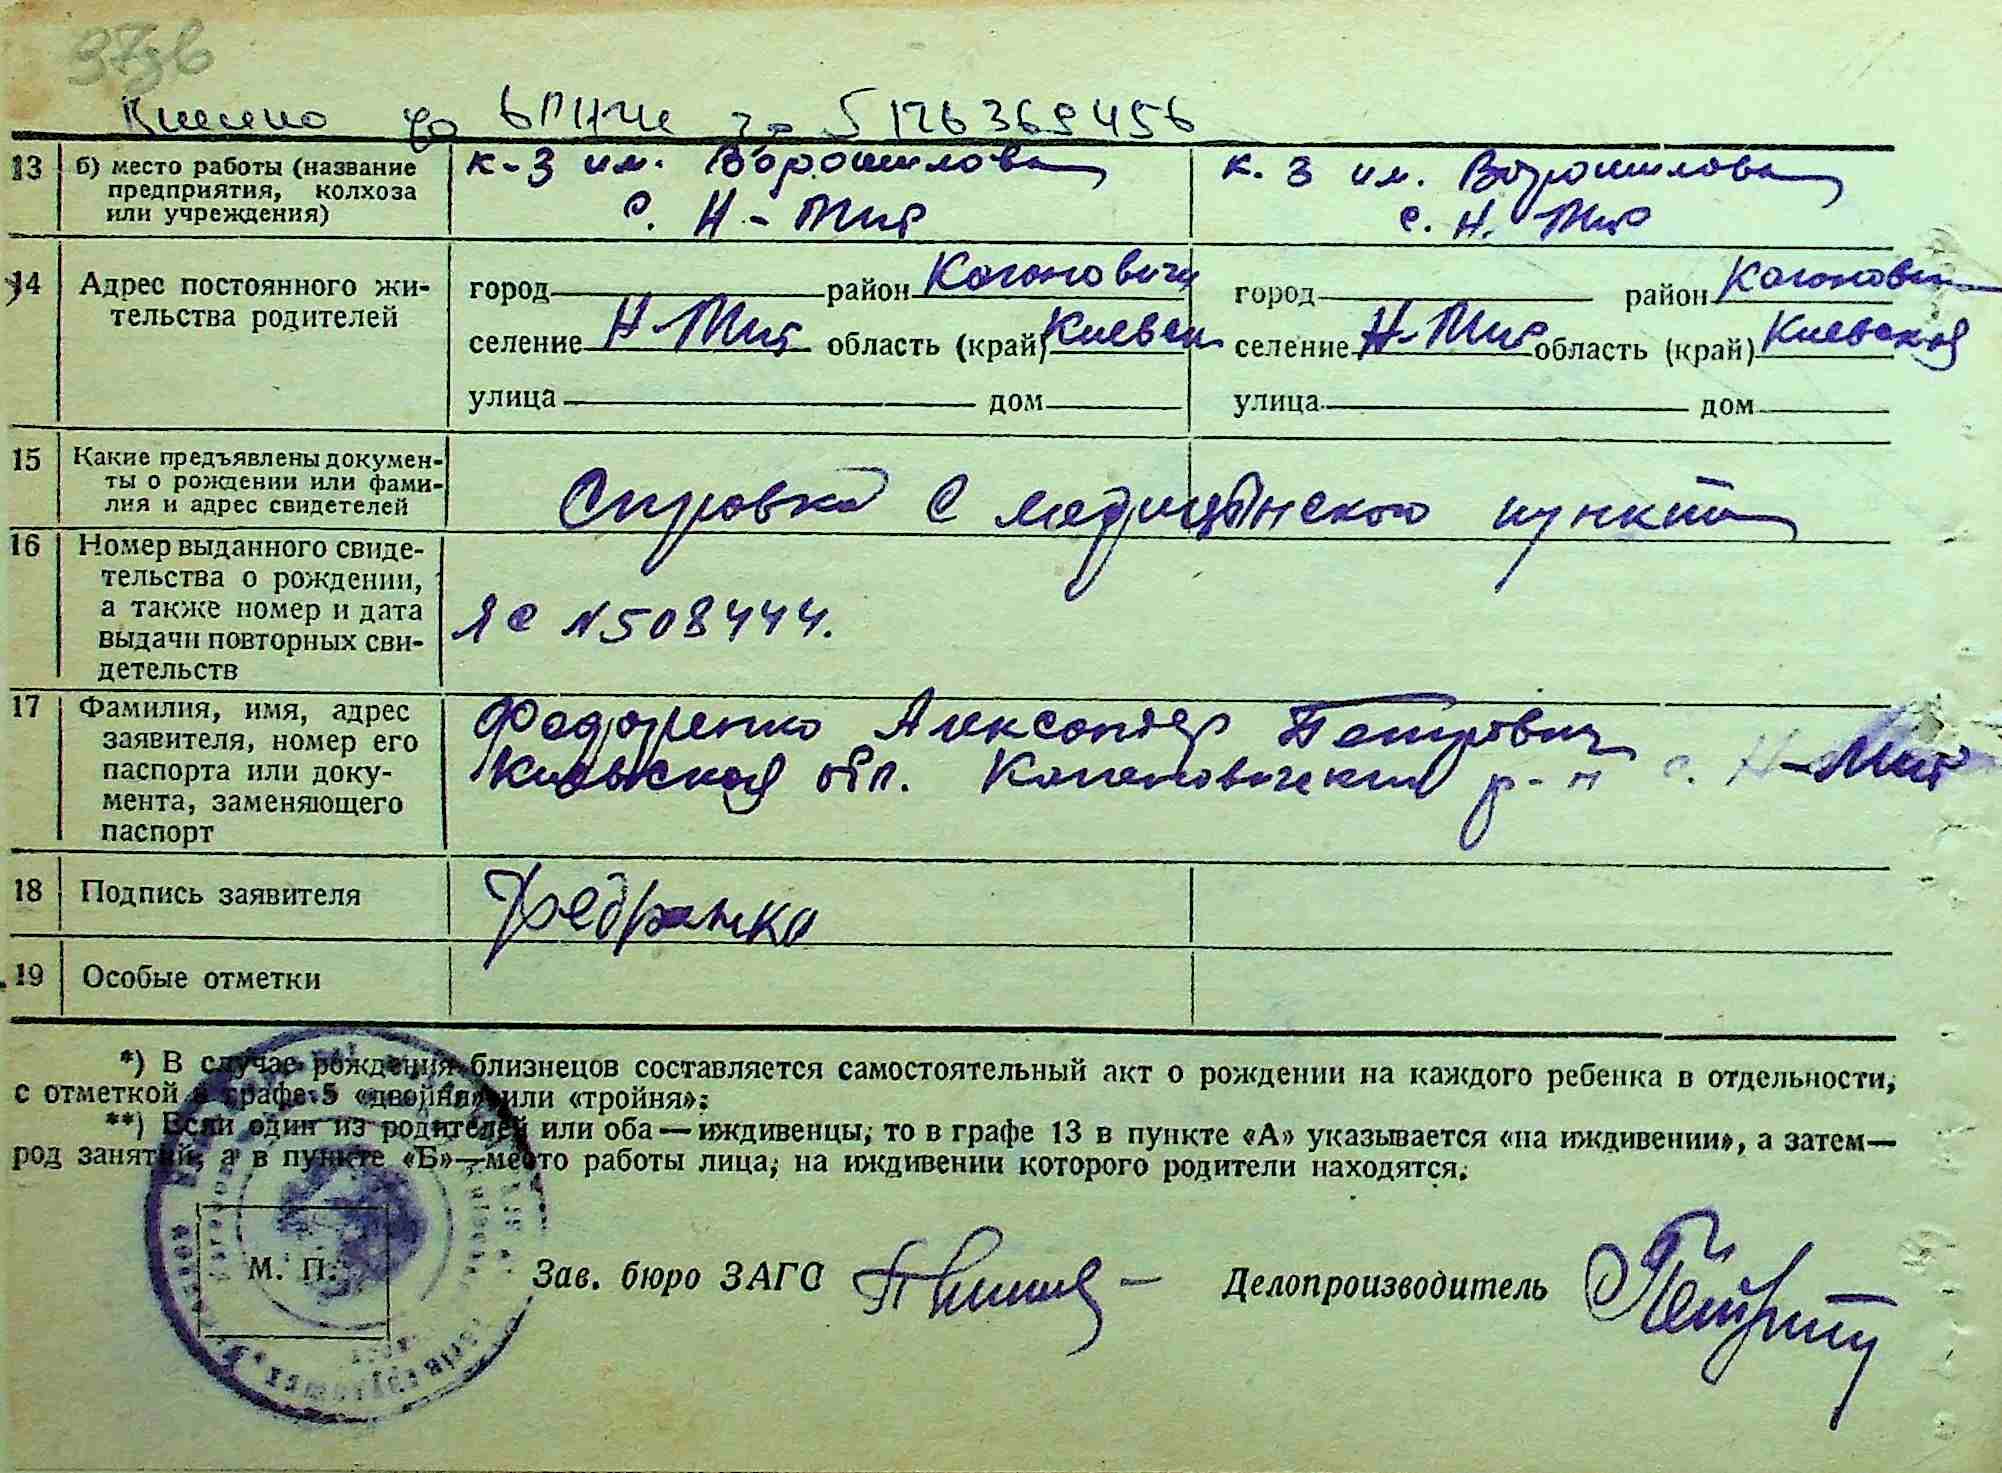 37зв
Внесено до за 5126369456
13 б) место работы (название предприятия, колхоза или учреждения) к-з им. Ворошилова с. Н-Мир к. з им. Ворошилова с. Н. Мир
14 Адрес постоянного жи-
тельства родителей
город район Коганович город район Каганович
селение Н-Мир область (край) Киевск селение Н-Мир область (край) Киевская
улица дом улица дом
15 Какие предъявлены докумен-
ты о рождении или фами-
лия и адрес свидетелей
Справка с медицинского пункта
16 Номер выданного свиде-
тельства о рождении,
а также номер и дата
выдачи повторных сви-
детельств
ЯС №508444.
17 Фамилия, имя, адрес
заявителя, номер его
паспорта или доку-
мента, заменяющего
паспорт
Федоренко Александр Петрович
Киевская обл. Кагановический р-н с. Н-Мир
18 Подпись заявителя
19 Особые отметки
*) В случае рождения близнецов составляется самостоятельный акт о рождении на каждого ребенка в отдельности,
с отметкой в графе 5 «двойня» или «тройня»;
**) Если один из родителей или оба — иждивенцы, то в графе 13 в пункте «А» указывается «на иждивении», а затем—
род занятий, а в пункте «Б»—место работы лица, на иждивении которого родители находятся.
М. П. Зав. бюро ЗАГС Делопроизводитель